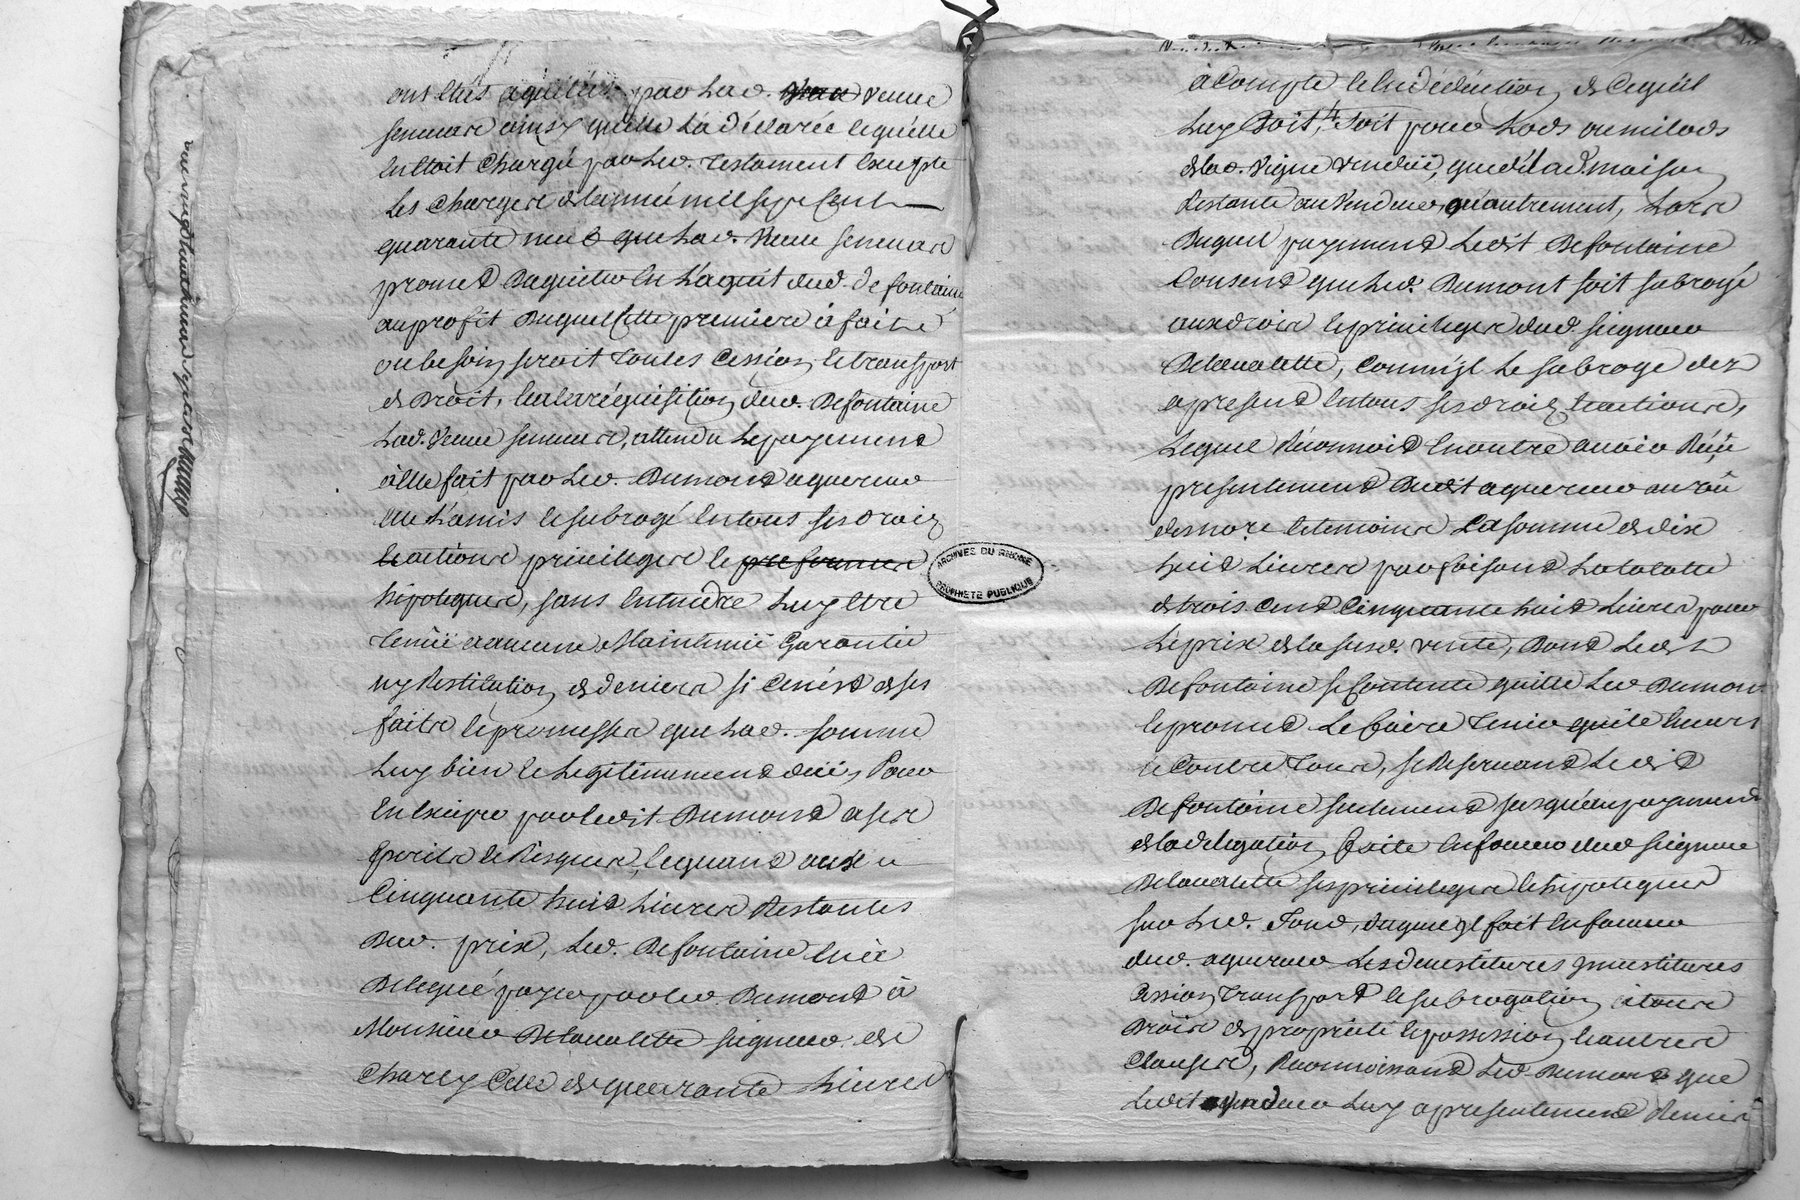 ont étés aquittés par Lad. veuve
senevare ainsy quelle L'a déclaré lequelle
en Etoit Chargé par Led. testament Excepté
Les Charges de lannée mil sept Cent
quarante neuf que Lad. Veuve senevare
promet Daquitter En L'aquit dud. Defontaine
au profit Duquel Cette première à fait Et
ou besoin seroit toutes Cession, Et transport
de Droit, Et a la réquisition dud. Defontaine
Lad. Veuve senevare, attendu Le payement
à Elle fait par Led. Dumond aquereur
Elle L'a mis Et subrogé En tous ses droits
Et actions privileges Et preferances
hipoteques, sans Entendre Luy Etre
tenüe d'aucune Maintenüe Garantie
ny Restitution de deniers si Ce n'est de ses
faits Et promesses que Lad. somme
Luy bien Et Legitimement deüe, Pour
En Exiger par ledit Dumond a ses
perils Et Risques, Et quand aux
Cinquante huit Livres Restantes
Dud. prix, Led. Defontaine En a
Delegué payer par Led. Dumond à
Monsieur Delavalette seigneur de
Charly Celle de quarante Livres
ARCHIVES DU RHONE
PROPRIETE PUBLIQUE
à Compte Et En déduction de Ce qu'il
Luy Doit, soit pour Lods ou milods
de lad. Vigne vendüe, que de lad. maison
Restante au Vendeur, qu'autrement, Lors
Duquel payement Ledit Defontaine
Consend que Led. Dumont soit subrogé
aux droits Et privileges dud. seigneur
Delavalette, Comm'jl Le subroge dez
apresend En tous ses droits Et actions,
Lequel Reconnoit En outre avoir Reçû
presentement Dudit aquereur au vû
de no.re Et temoins La somme de dix
huit Livres parfaisant La totalle
de trois Cent Cinquante huit Livres pour
Le prix de la susd. vente, Dont Ledit
Defontaine se Contente quitte Led. Dumon
Et promet Le faire tenir quite Envers
Et Contre tous, se Reservant Ledit
Defontaine seulement jusqu'au payement
de la delegation faite En faveur dud. seigneur
Delavalette ses privileges Et hipoteques
sur Led. fond, duquel jl fait En faveur
dud. aquereur Les devestitures jnvestitures
Cession, transport Et subrogation à tous
Droits de propriété Et possession Et autres
Clauses, Reconnoissant Led. Dumont que
Ledit Vendeur Luy a presentement Remis